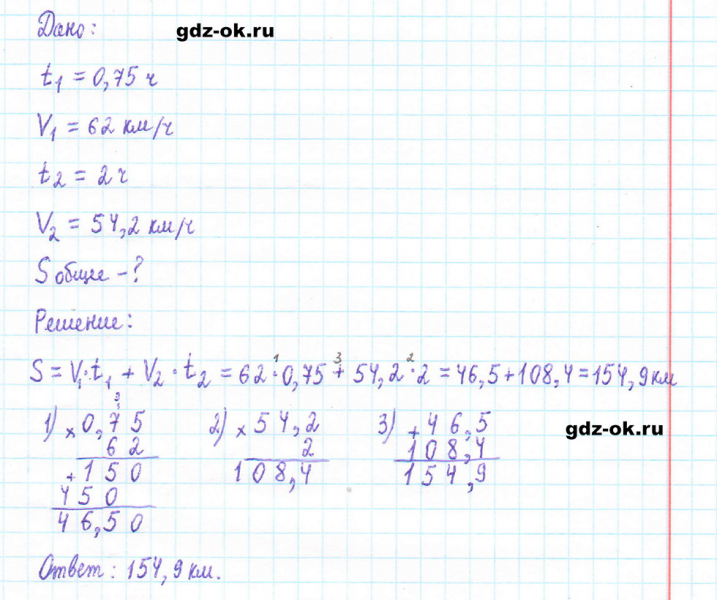 Дано:
gdz-ok.ru
t₁ = 0,75 ч
V₁ = 62 км/ч
t₂ = 2 ч
V₂ = 54,2 км/ч
S общее - ?
Решение:
1 3 2
S = V₁·t₁ + V₂·t₂ = 62·0,75 + 54,2·2 = 46,5+108,4=154,9 км
1) × 0,75 2) × 54,2 3) + 46,5
62 2 108,4
+ 150 108,4 154,9
450
46,50
gdz-ok.ru
Ответ: 154,9 км.